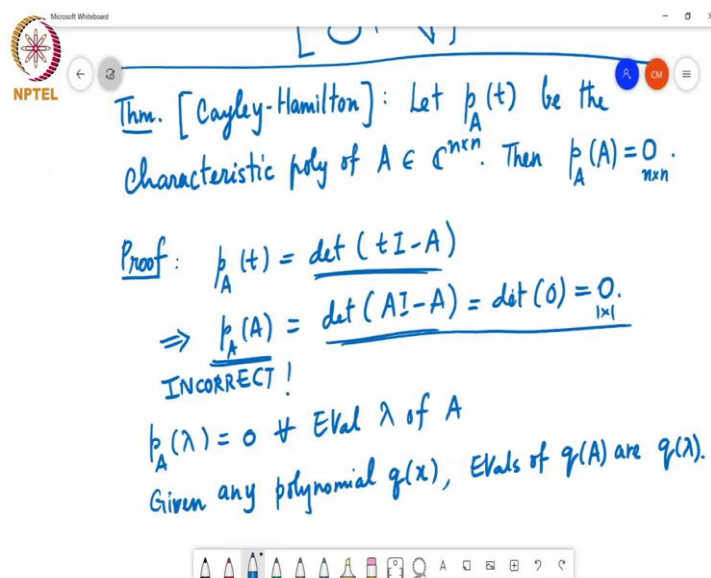 Microsoft Whiteboard
NPTEL
CM
Thm. [Cayley-Hamilton]: Let p_A(t) be the
characteristic poly of A ∈ ℂ^{n×n}. Then p_A(A) = 0_{n×n}.
Proof: p_A(t) = det (tI-A)
⇒ p_A(A) = det (AI-A) = det (0) = 0_{1×1}.
INCORRECT!
p_A(λ) = 0 ∀ Eval λ of A
Given any polynomial q(x), Evals of q(A) are q(λ).